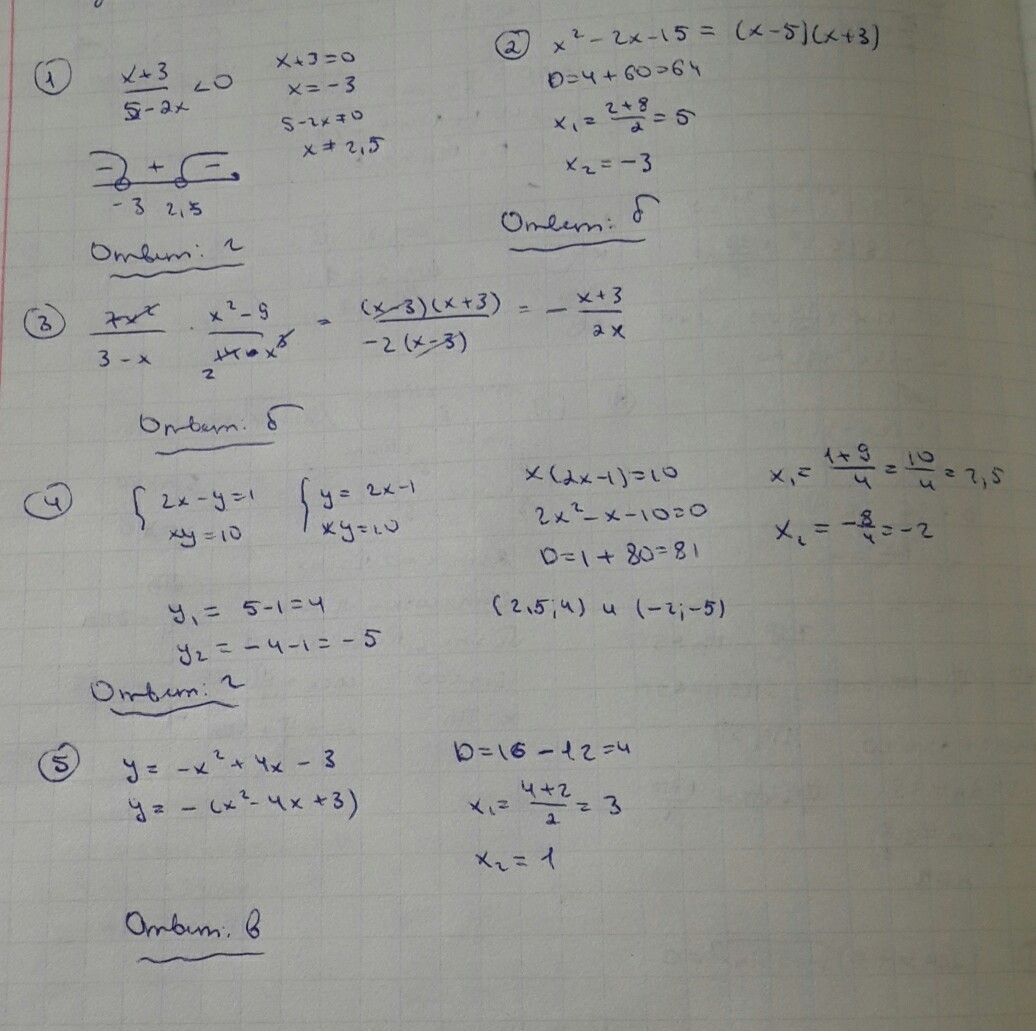 ① x+3 / 5-2x < 0
x+3=0
x = -3
5-2x≠0
x ≠ 2,5
- + -
-3 2,5
Ответ: г
② x² - 2x - 15 = (x-5)(x+3)
D=4+60=64
x₁ = (2+8)/2 = 5
x₂ = -3
Ответ: б
③ 7x² / 3-x · x²-9 / 14x³ = (x-3)(x+3) / -2(x-3) = - x+3 / 2x
2
Ответ: б
④ { 2x-y=1 { y= 2x-1
xy=10 xy=10
x(2x-1)=10
2x²-x-10=0
D=1+80=81
x₁= (1+9)/4 = 10/4 = 2,5
x₂ = -8/4 = -2
y₁ = 5-1=4
y₂ = -4-1= -5
(2,5;4) и (-2;-5)
Ответ: г
⑤ y= -x²+4x-3
y= -(x²-4x+3)
D=16-12=4
x₁= (4+2)/2 = 3
x₂ = 1
Ответ: в